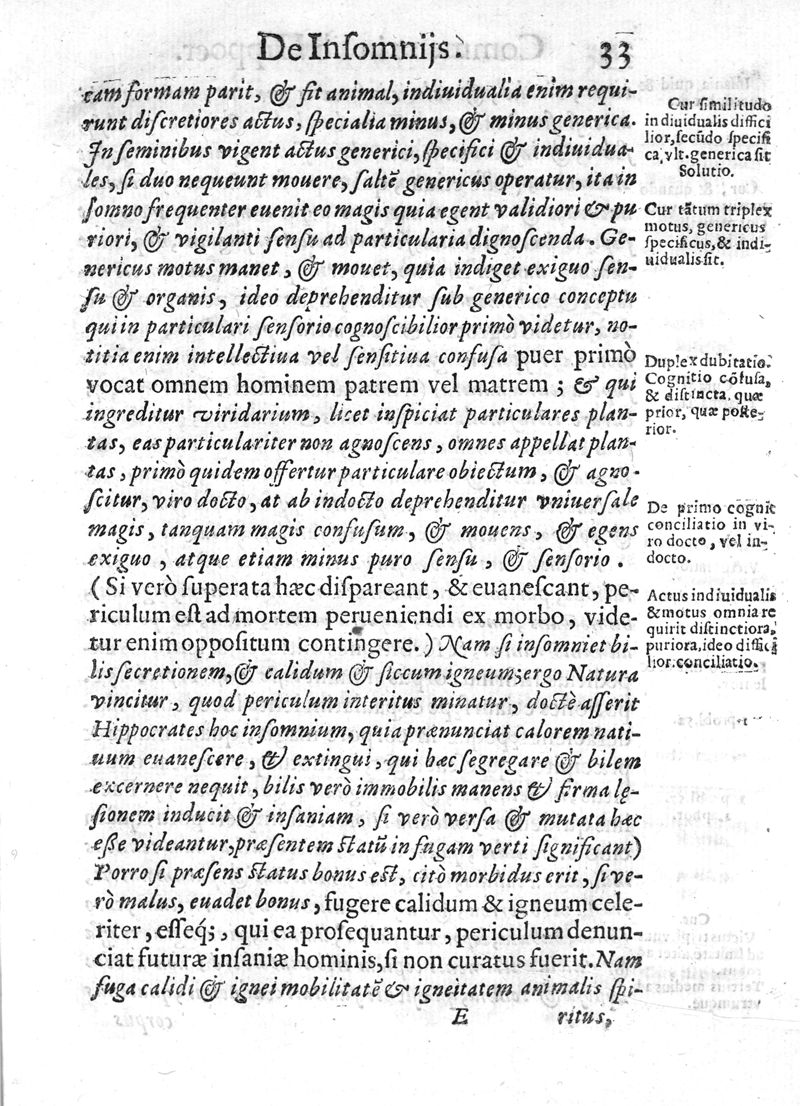 De Insomnijs.
33
eam formam parit, & fit animal, indiuidualia enim requi-
runt discretiores actus, specialia minus, & minus generica.
In seminibus vigent actus generici, specifici & indiuidua-
les, si duo nequeunt mouere, saltē genericus operatur, ita in
somno frequenter euenit eo magis quia egent validiori & pu
riori, & vigilanti sensu ad particularia dignoscenda. Ge-
nericus motus manet, & mouet, quia indiget exiguo sen-
su & organis, ideo deprehenditur sub generico conceptu
qui in particulari sensorio cognoscibilior primò videtur, no-
titia enim intellectiua vel sensitiua confusa puer primò
vocat omnem hominem patrem vel matrem ; & qui
ingreditur viridarium, licet inspiciat particulares plan-
tas, eas particulariter non agnoscens, omnes appellat plan-
tas, primò quidem offertur particulare obiectum, & agno-
scitur, viro docto, at ab indocto deprehenditur vniuersale
magis, tanquam magis confusum, & mouens, & egens
exiguo, atque etiam minus puro sensu, & sensorio.
(Si verò superata hæc dispareant, & euanescant, pe-
riculum est ad mortem perueniendi ex morbo, vide-
tur enim oppositum contingere.) Nam si insomniet bi-
lis secretionem, & calidum & siccum igneum; ergo Natura
vincitur, quod periculum interitus minatur, doctè asserit
Hippocrates hoc insomnium, quia prænunciat calorem nati-
uum euanescere, & extingui, qui hæc segregare & bilem
excernere nequit, bilis verò immobilis manens & firma lę-
sionem inducit & insaniam, si verò versa & mutata hæc
esse videantur, præsentem statū in fugam verti significant)
Porro si præsens status bonus est, citò morbidus erit, si ve-
rò malus, euadet bonus, fugere calidum & igneum cele-
riter, esseq;, qui ea prosequantur, periculum denun-
ciat futuræ insaniæ hominis, si non curatus fuerit. Nam
fuga calidi & ignei mobilitatē & igneitatem animalis spi-
E
ritus,
Cur similitudo
indiuidualis diffici
lior, secūdo specifi
ca, vlt. generica sit
Solutio.
Cur tātum triplex
motus, genericus
specificus, & indi-
uidualis sit.
Duplex dubitatio.
Cognitio cōfusa,
& distincta. quæ
prior, quæ poste-
rior.
De primo cognit
conciliatio in vi-
ro docto, vel in-
docto.
Actus indiuidualis
& motus omnia re
quirit distinctiora,
puriora, ideo diffici
lior. conciliatio.